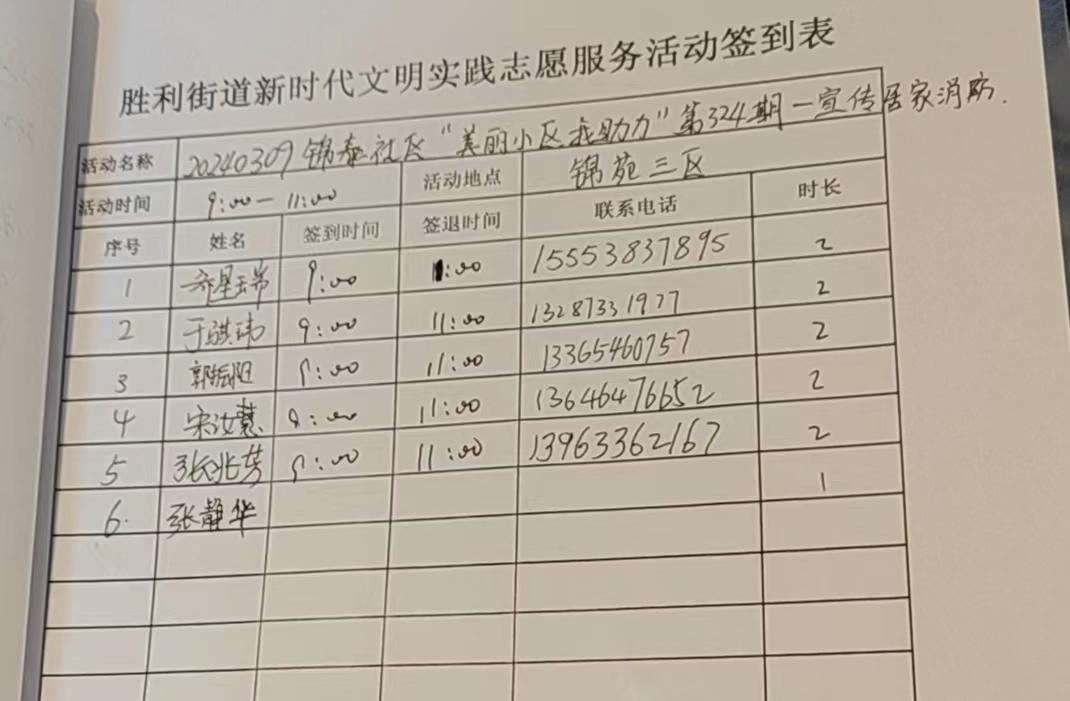 胜利街道新时代文明实践志愿服务活动签到表
活动名称 20240309锦泰社区“美丽小区我助力”第324期一宣传居家消防.
活动时间 9:00一11:00 活动地点 锦苑三区
序号 姓名 签到时间 签退时间 联系电话 时长
1 9:00 11:00 15553837895 2
2 于琪玮 9:00 11:00 13287331977 2
3 郭振阳 9:00 11:00 13365460757 2
4 宋汝慧 9:00 11:00 13646476652 2
5 张兆芳 9:00 11:00 13963362167 2
6. 张静华 1